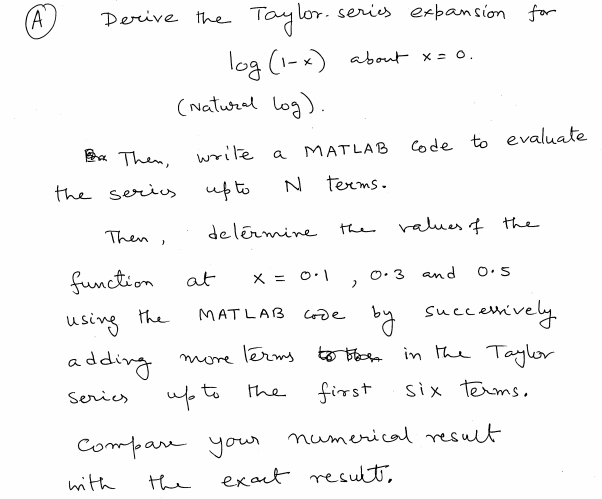 (A) Derive the Taylor series expansion for
log (1-x) about x = 0.
(Natural log).
Then, write a MATLAB code to evaluate
the series upto N terms.
Then, determine the values of the
function at x = 0.1 , 0.3 and 0.5
using the MATLAB code by successively
adding more terms in the Taylor
series upto the first six terms.
Compare your numerical result
with the exact result.